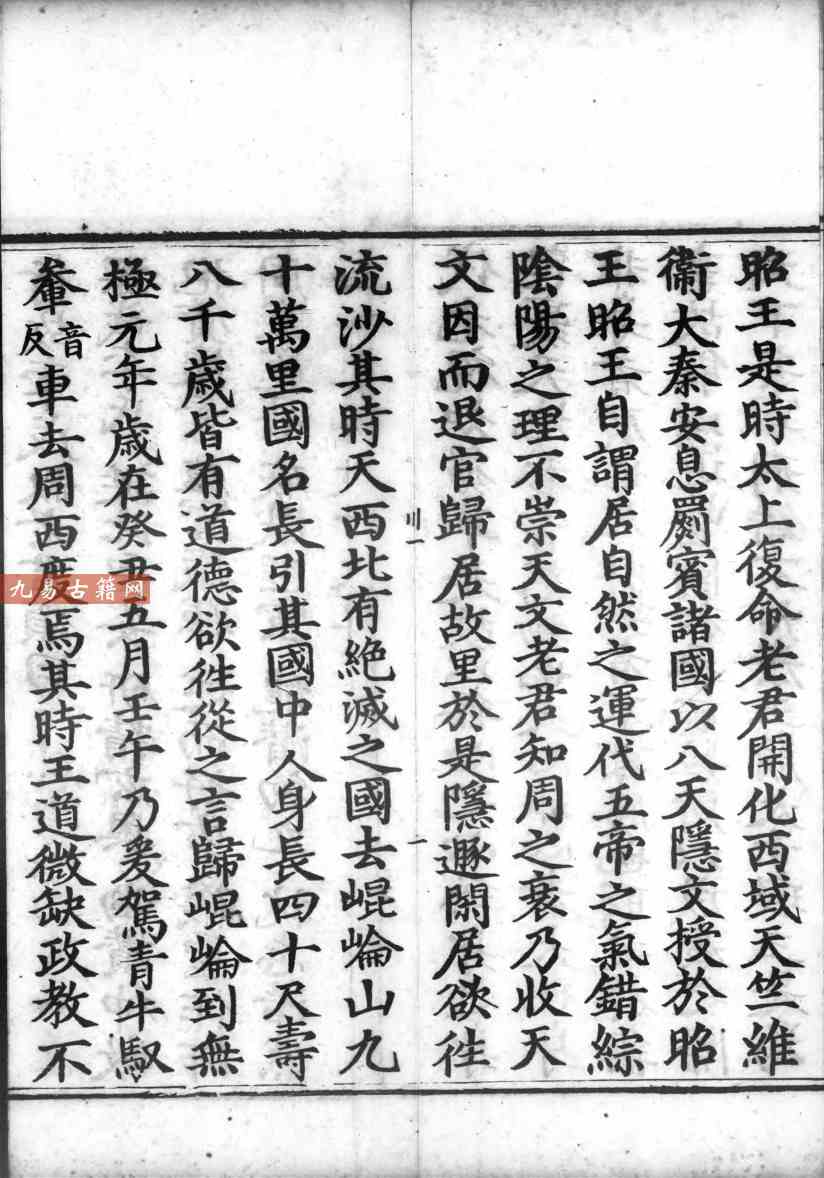 昭王是時太上復命老君開化西域天竺維
衛大秦安息罽賓諸國以八天隱文授於昭
王昭王自謂居自然之運代五帝之氣錯綜
陰陽之理不崇天文老君知周之衰乃收天
文因而退官歸居故里於是隱遯閑居欲往
川一
一
流沙其時天西北有絶滅之國去崐崘山九
十萬里國名長引其國中人身長四十尺壽
八千歲皆有道德欲往從之言歸崐崘到無
極元年歲在癸丑五月壬午乃爰駕青牛馭
軬音反車去周西度焉其時王道微缺政教不
九易古籍网